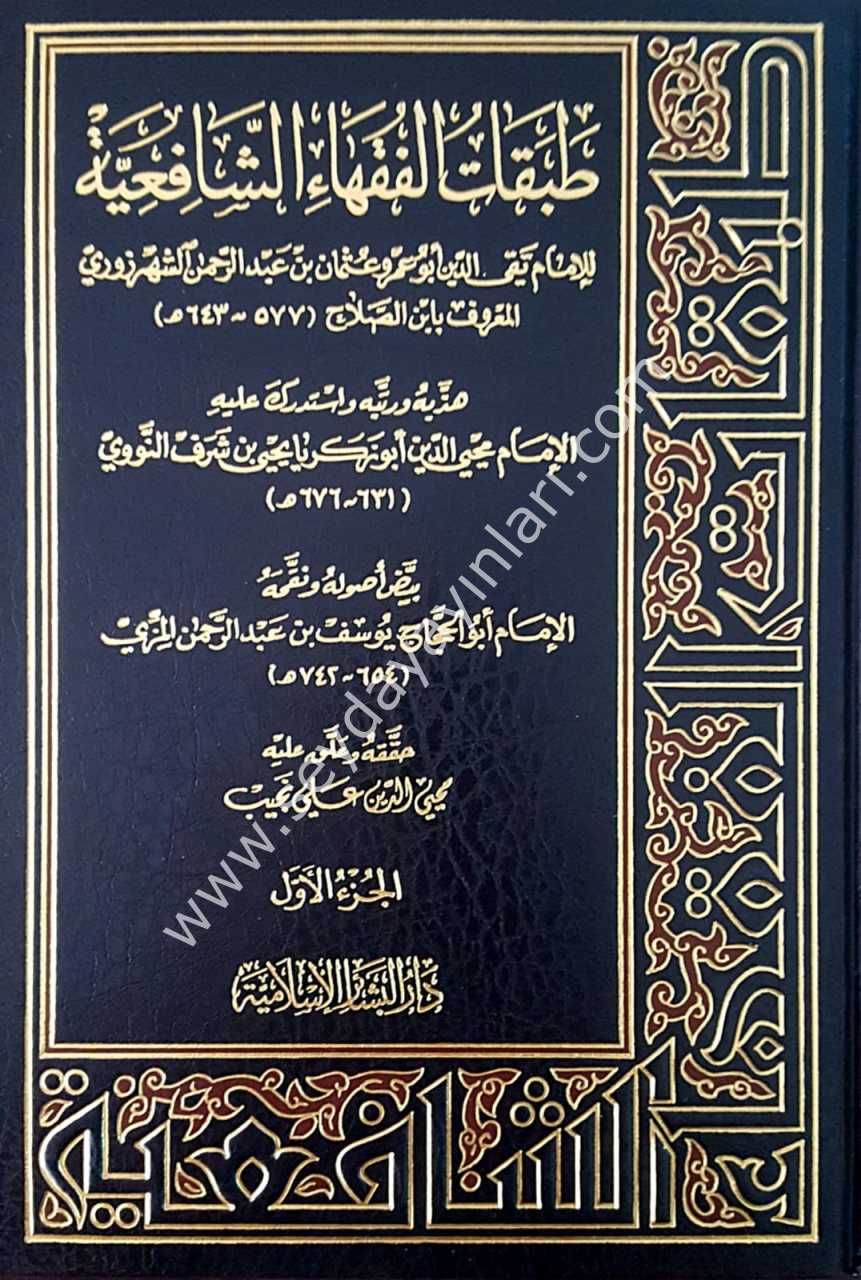 طَبَقَاتُ الفُقَهَاءِ الشَّافِعِيَّة
للإمام تقي الدين أبو عمرو عثمان بن عبد الرحمن الشهرزوري
المعروف بابن الصلاح (٥٧٧ - ٦٤٣هـ)
هذبه ورتبه واستدرك عليه
الإمام محيي الدين أبو زكريا يحيى بن شرف النووي
(٦٣١ - ٦٧٦هـ)
بيض أصوله ونقحه
الإمام أبو الحجاج يوسف بن عبد الرحمن المزي
(٦٥٤ - ٧٤٢هـ)
حققه وعلق عليه
محيي الدين علي نجيب
الجزء الأول
دار البشائر الإسلامية
طبقات الفقهاء
الشافعية
www.seydayayinlari.com